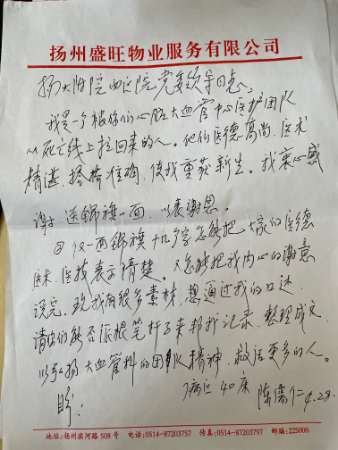 扬州盛旺物业服务有限公司
扬大附院西区院党委领导同志:
我是一个被你们心脏大血管中心医护团队
从死亡线上拉回来的人。他们医德高尚、医术
精湛、措施准确,使我重获新生。我衷心感
谢!送锦旗一面,以表谢恩。
仅一面锦旗十几个字怎能把大家的医德
医术、医技表示清楚。又怎能把我内心的谢意
说完。现我有很多素材,想通过我的口述
请你们能否派根笔杆子来帮我记录、整理成文
以弘扬大血管科的团队精神,救活更多的人。
病区40床
盼! 陈儒仁 9.28.
地址:扬州滨河路508号 电话:0514-87203757 传真:0514-87203797 邮编:225000